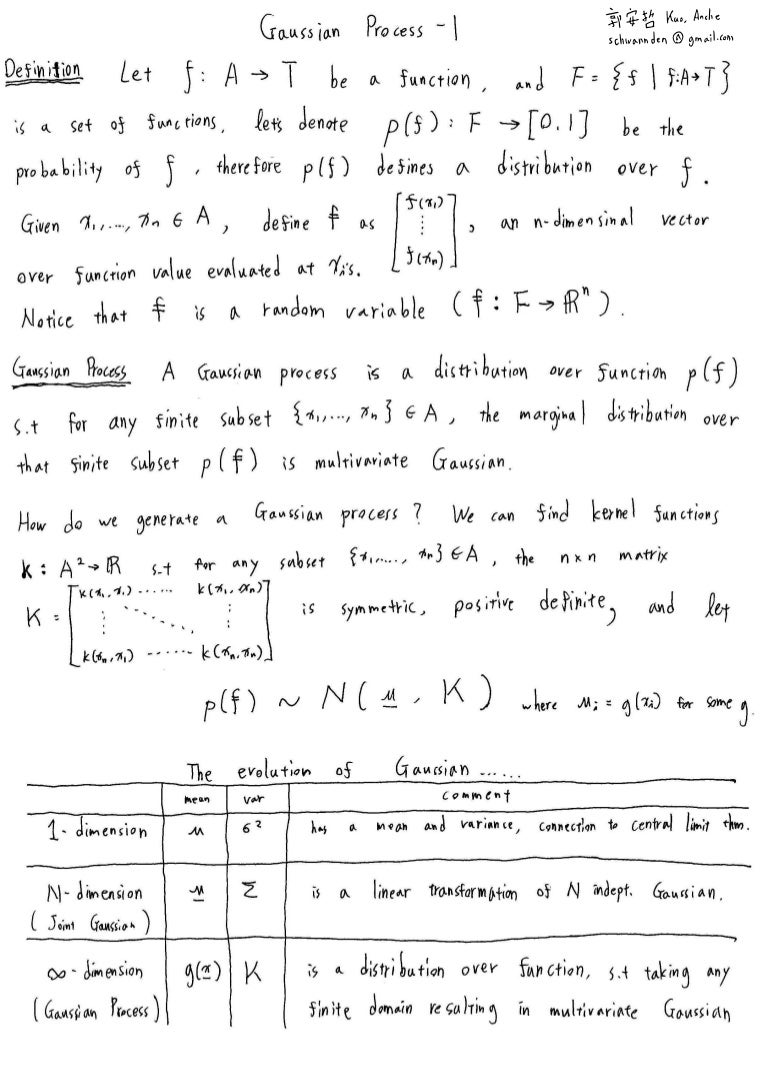 Gaussian Process - 1
郭安哲 Kuo, Anche
schwannden @ gmail.com
Definition Let f : A → T be a function, and F = { f | f:A→T }
is a set of functions, let's denote p(f) : F → [0,1] be the
probability of f, therefore p(f) defines a distribution over f.
Given x₁,..., xₙ ∈ A, define 𝐟 as [ f(x₁) ⋮ f(xₙ) ], an n-dimensinal vector
over function value evaluated at xᵢ's.
Notice that 𝐟 is a random variable (𝐟 : F → ℝⁿ).
Gaussian Process A Gaussian process is a distribution over function p(f)
s.t for any finite subset {x₁,..., xₙ} ∈ A, the marginal distribution over
that finite subset p(𝐟) is multivariate Gaussian.
How do we generate a Gaussian process? We can find kernel functions
k : A² → ℝ s.t for any subset {x₁,...., xₙ} ∈ A, the n×n matrix
K = [ k(x₁,x₁) ...... k(x₁,xₙ) ⋮ ⋱ ⋮ k(xₙ,x₁) ...... k(xₙ,xₙ) ] is symmetric, positive definite, and let
p(𝐟) ~ N( μ, K ) where μᵢ = g(xᵢ) for some g.
The evolution of Gaussian ......
mean var comment
1-dimension μ σ² has a mean and variance, connection to central limit thm.
N-dimension μ Σ is a linear transformation of N indept. Gaussian.
(Joint Gaussian)
∞-dimension g(x) K is a distribution over function, s.t taking any
(Gaussian Process) finite domain resulting in multivariate Gaussian